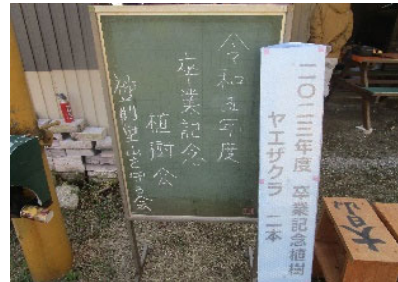 令和五年度
卒業記念
植樹会
里山を守る会
二〇二三年度 卒業記念植樹
ヤエザクラ 二本